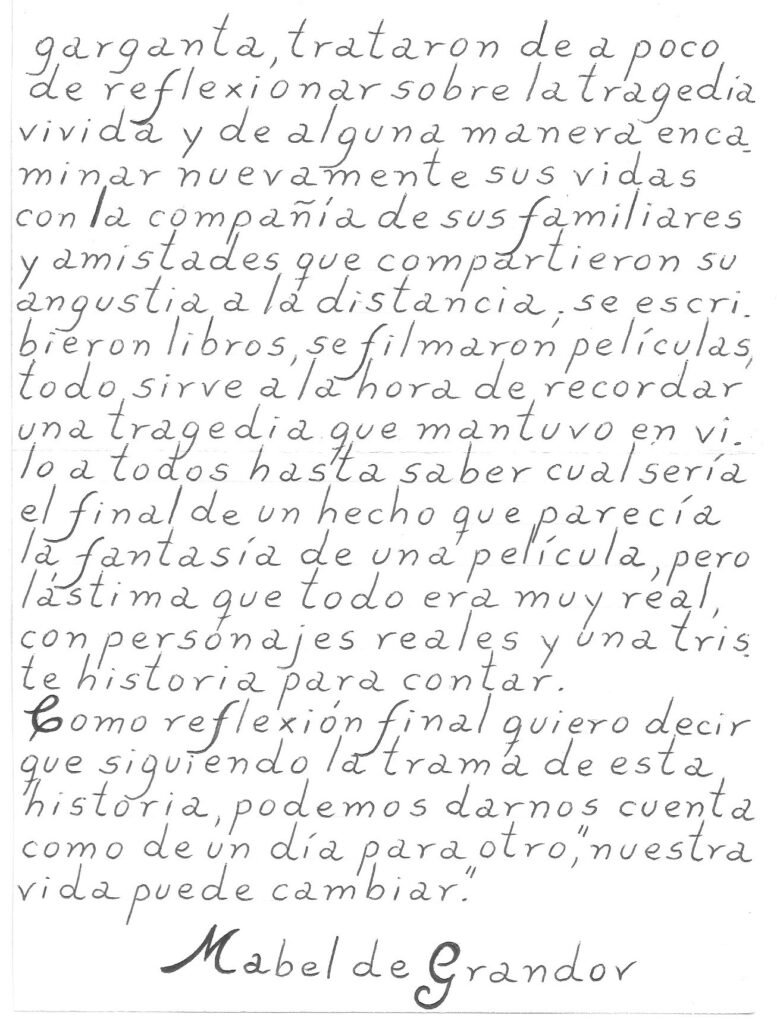 garganta, trataron de a poco
de reflexionar sobre la tragedia
vivida y de alguna manera enca-
minar nuevamente sus vidas
con la compañía de sus familiares
y amistades que compartieron su
angustia a la distancia, se escri-
bieron libros, se filmaron películas,
todo sirve a la hora de recordar
una tragedia que mantuvo en vi-
lo a todos hasta saber cual sería
el final de un hecho que parecía
la fantasía de una película, pero
lástima que todo era muy real,
con personajes reales y una tris-
te historia para contar.
Como reflexión final quiero decir
que siguiendo la trama de esta
historia, podemos darnos cuenta
como de un día para otro, "nuestra
vida puede cambiar."
Mabel de Grandov